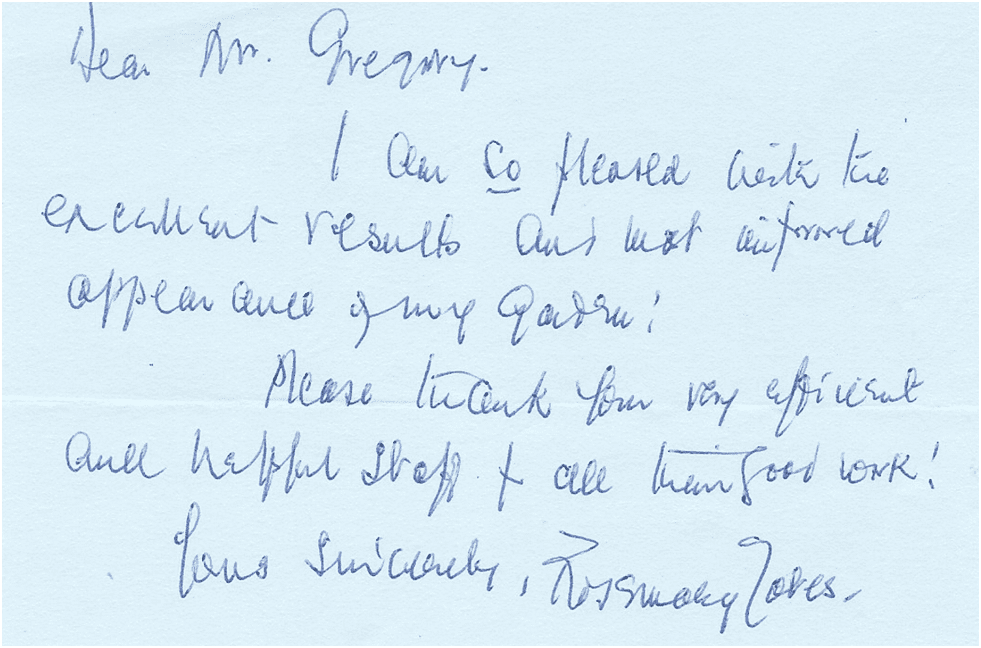 Dear Mr. Gregory.
I am so pleased with the
excellent results and most improved
appearance of my garden!
Please thank your very efficient
and helpful staff for all their good work!
Yours Sincerely, Rosemary